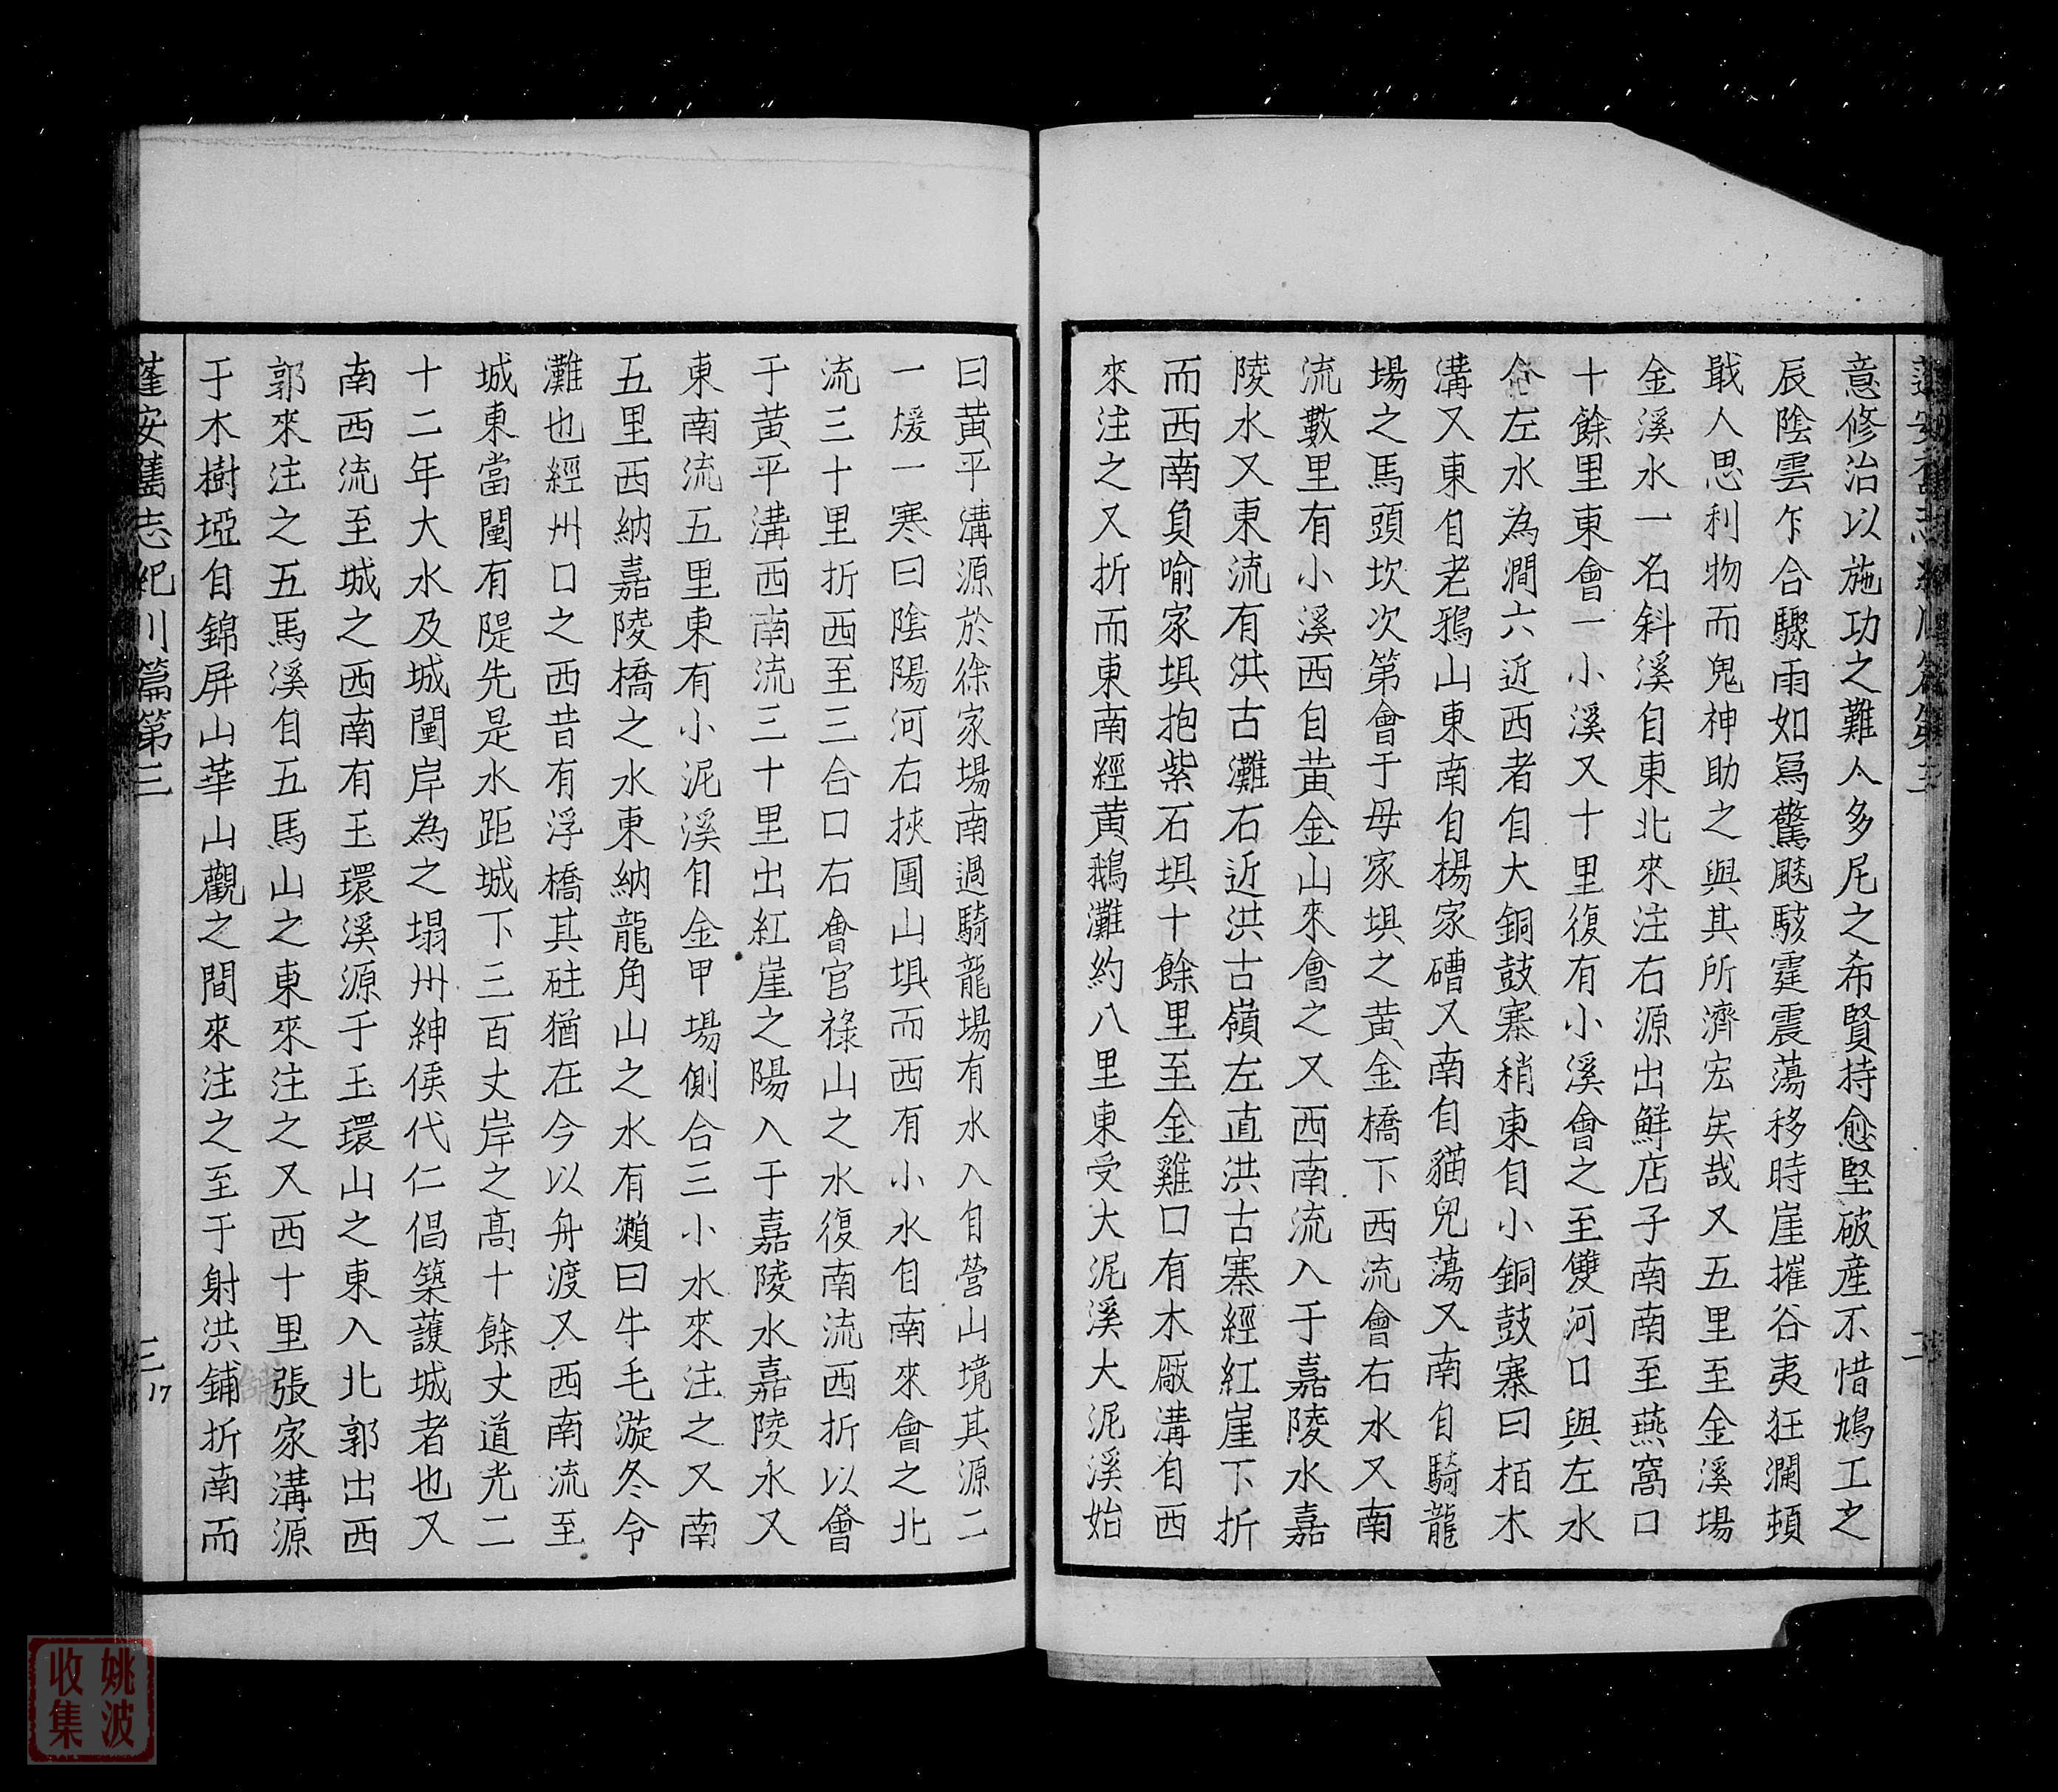 意修治以施功之難人多尼之希賢持愈堅破產不惜鳩工之
辰陰雲乍合驟雨如舄驚颷駭霆震蕩移時崖摧谷夷狂瀾頓
戢人思利物而鬼神助之與其所濟宏矣哉又五里至金溪場
金溪水一名斜溪自東北來注右源出鮮店子南南至燕窩口
十餘里東會一小溪又十里復有小溪會之至雙河口與左水
合左水為澗六近西者自大銅鼓寨稍東自小銅鼓寨曰栢木
溝又東自老鴉山東南自楊家磳又南自貓兒蕩又南自騎龍
場之馬頭坎次第會于毋家垻之黃金橋下西流會右水又南
流數里有小溪西自黃金山來會之又西南流入于嘉陵水嘉
陵水又東流有洪古灘右近洪古嶺左直洪古寨經紅崖下折
而西南負喻家垻抱紫石垻十餘里至金雞口有木廠溝自西
來注之又折而東南經黃鵝灘約八里東受大泥溪大泥溪始
曰黃平溝源於徐家場南過騎龍場有水入自營山境其源二
一煖一寒曰陰陽河右挾團山垻而西有小水自南來會之北
流三十里折西至三合口右會官祿山之水復南流西折以會
于黃平溝西南流三十里出紅崖之陽入于嘉陵水嘉陵水又
東南流五里東有小泥溪自金甲場側合三小水來注之又南
五里西納嘉陵橋之水東納龍角山之水有瀨曰牛毛漩冬令
灘也經州口之西昔有浮橋其硅猶在今以舟渡又西南流至
城東當闉有隄先是水距城下三百丈岸之高十餘丈道光二
十二年大水及城闉岸為之塌州紳侯代仁倡築護城者也又
南西流至城之西南有玉環溪源于玉環山之東入北郭出西
郭來注之五馬溪自五馬山之東來注之又西十里張家溝源
于木樹埡自錦屏山華山觀之間來注之至于射洪鋪折南而
蓬安舊志紀川篇第三
三
17
姚波
收集